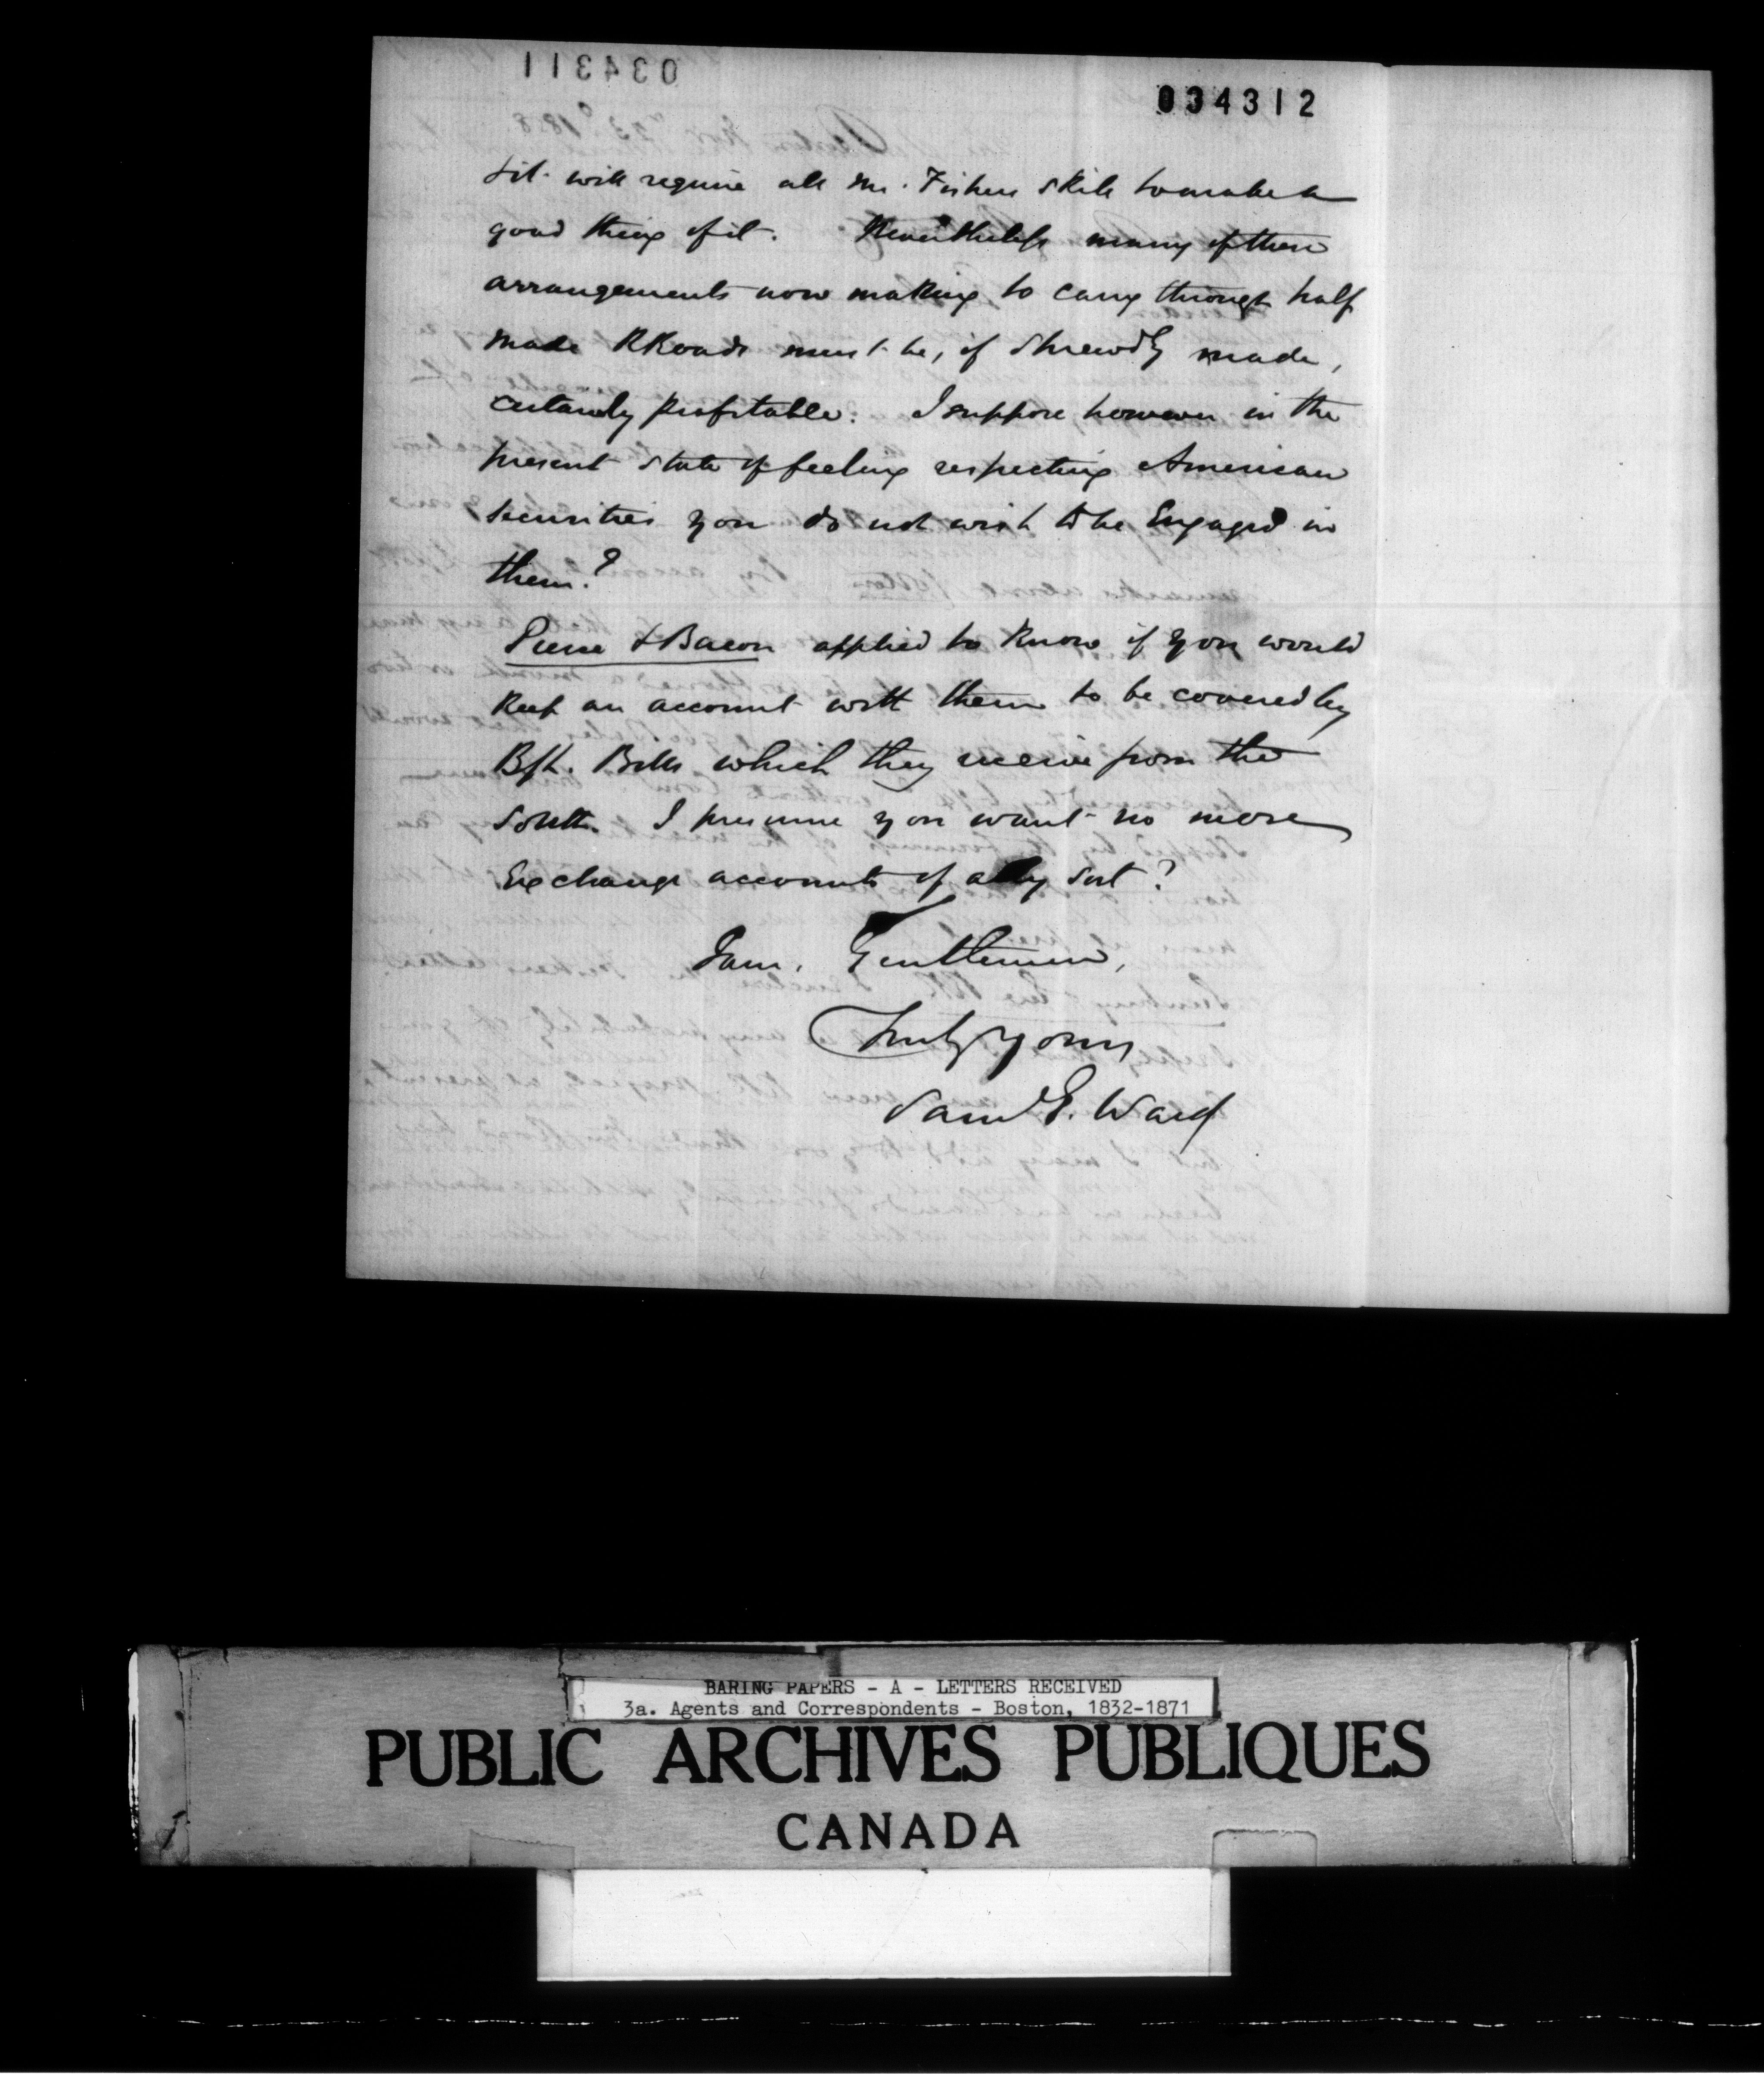 034312
& it will require all Mr. Fishers skill to make a
good thing of it. Nevertheless many of these
arrangements now making to carry through half
made RRoads must be, if shrewdly made,
certainly profitable. I suppose however in the
present state of feeling respecting American
securities you do not wish to be Engaged in
them?
Pierce & Bacon applied to know if you would
keep an account with them to be covered by
Bills which they receive from the
South. I presume you want no more
Exchange accounts of any sort?
I am, Gentlemen,
Truly yours
Saml G. Ward
BARING PAPERS - A - LETTERS RECEIVED
3a. Agents and Correspondents - Boston, 1832-1871
PUBLIC ARCHIVES PUBLIQUES
CANADA